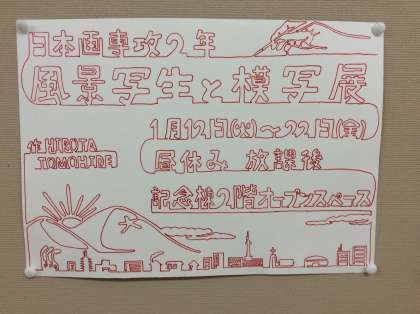 日本画専攻2年
風景写生と模写展
1月12日(火)～22日(金)
作 HIROTA
TOMOHIDE
昼休み 放課後
記念棟2階オープンスペース
大